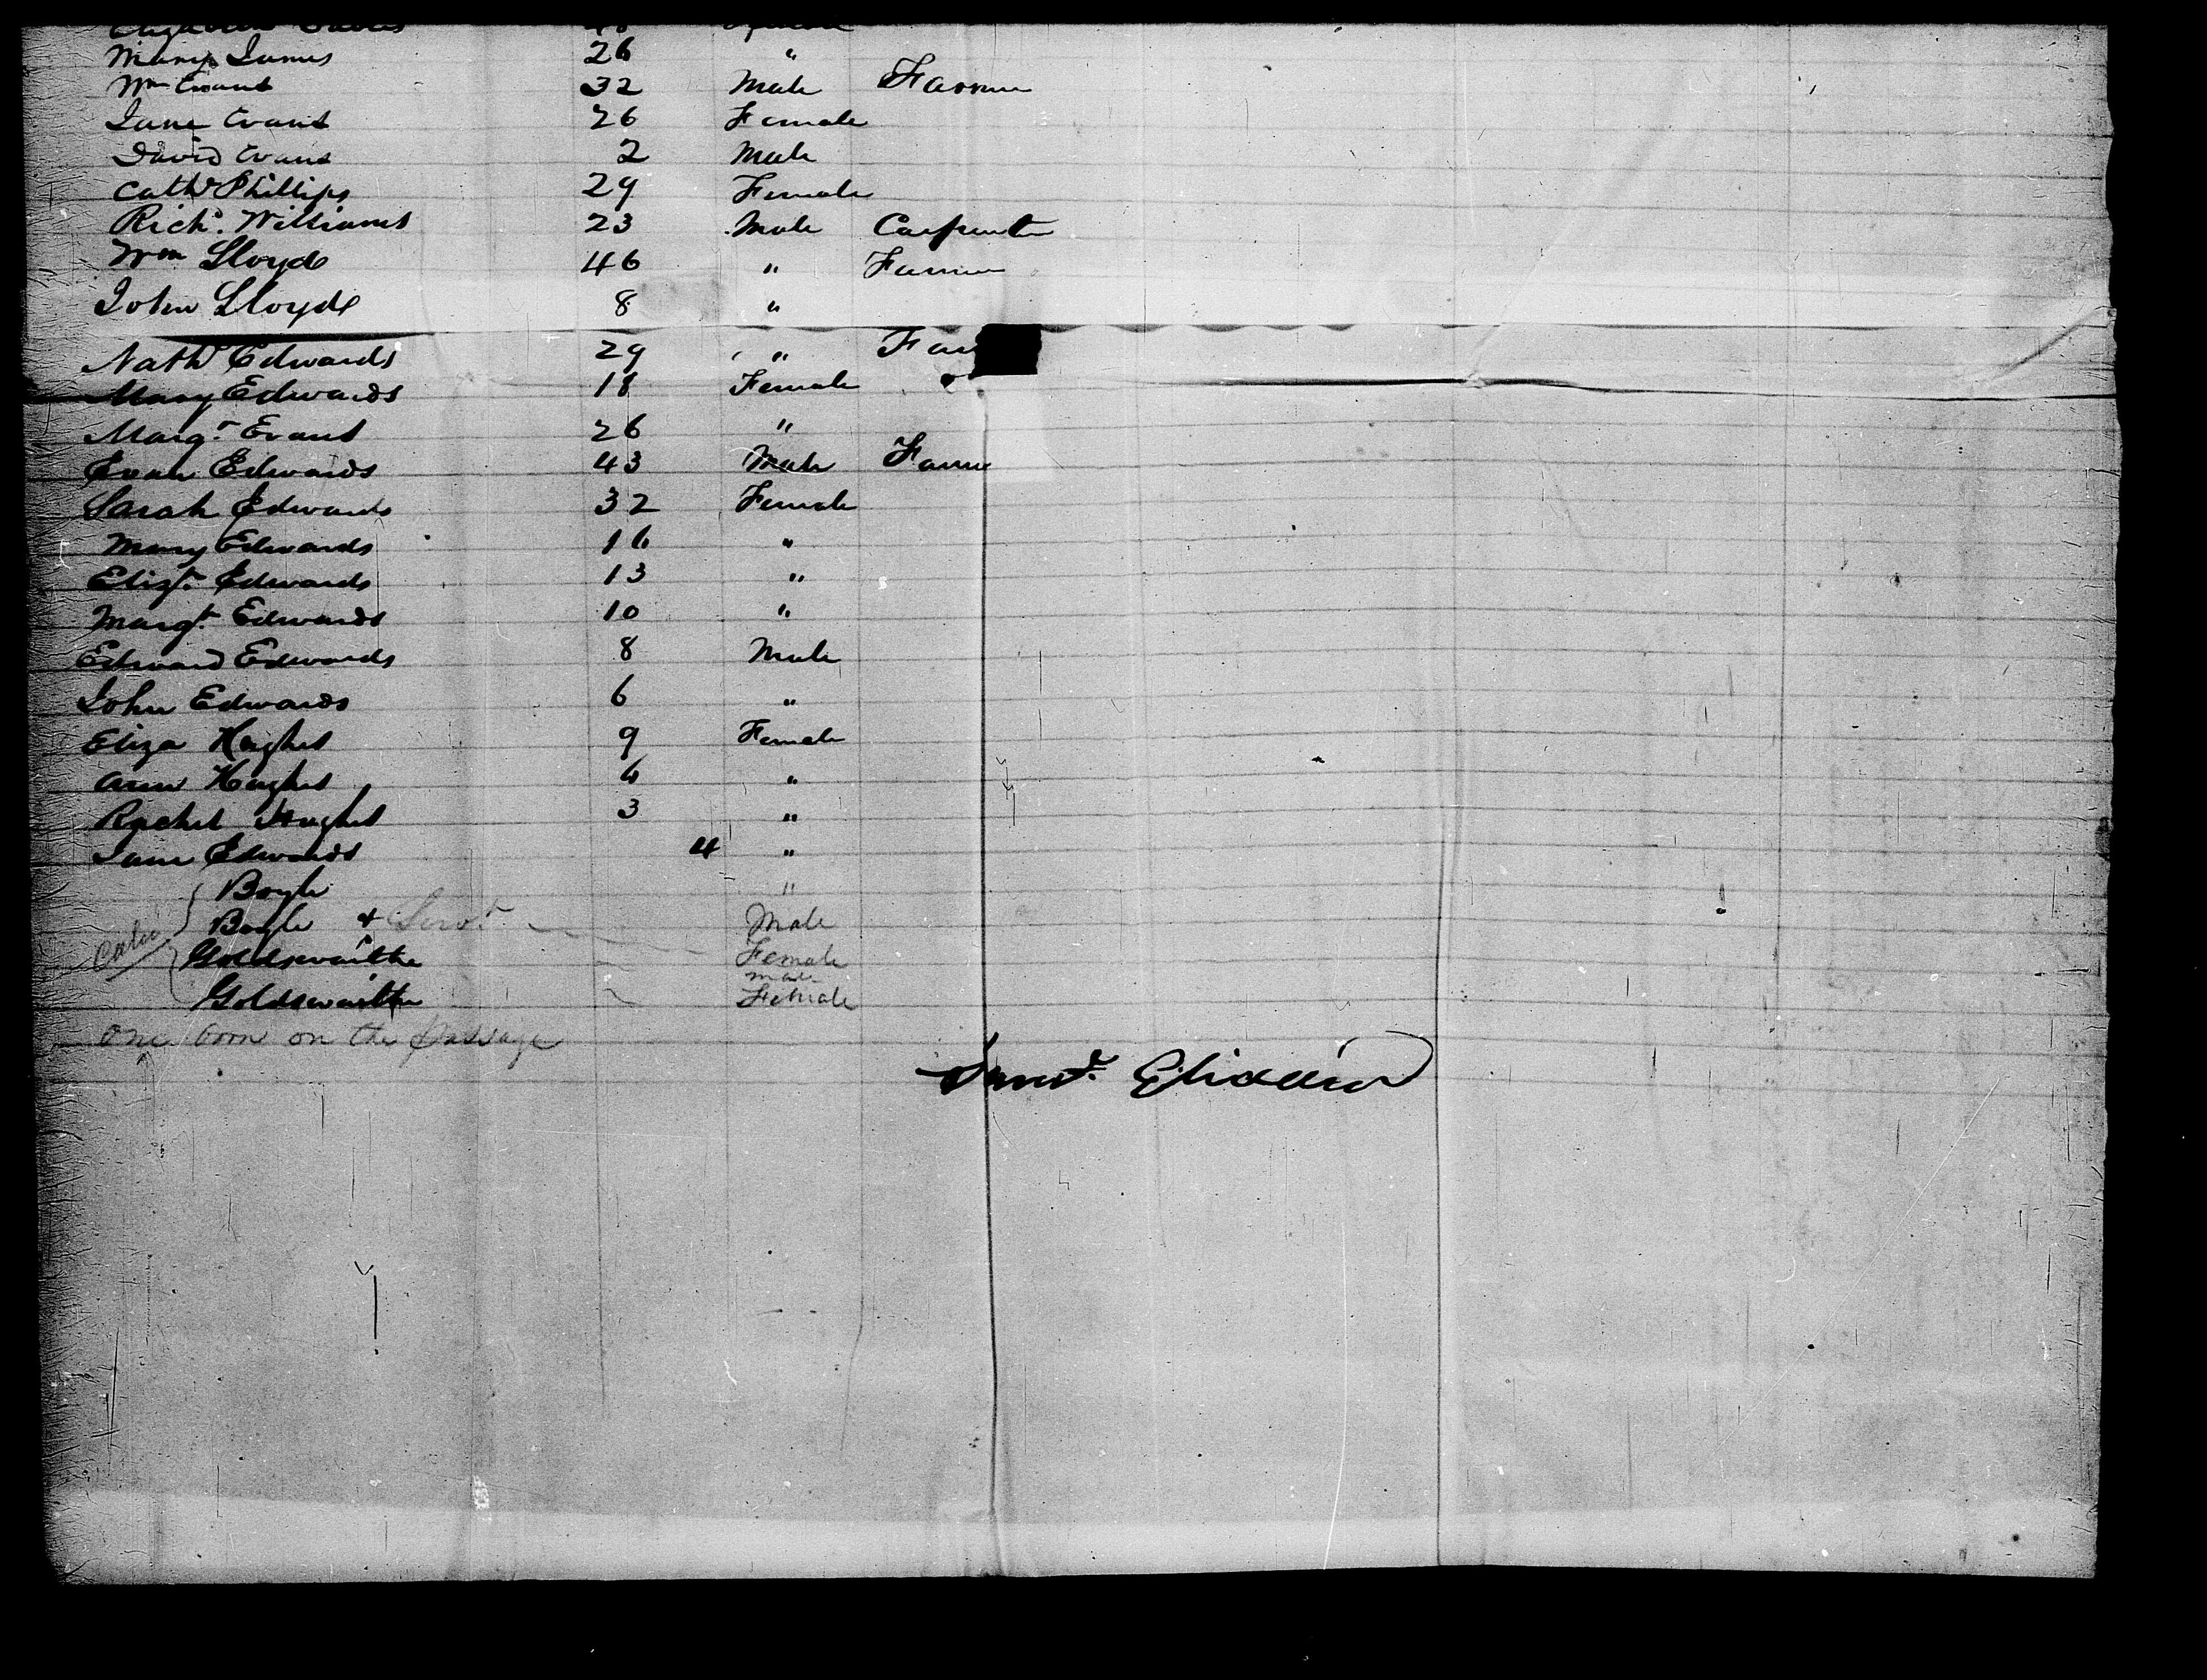 Mary James 26 "
Wm Evans 32 Male Farmer
Jane Evans 26 Female
David Evans 2 Male
Cath Phillips 29 Female
Richd. Williams 23 Male Carpenter
Wm Lloyde 46 " Farmer
John Lloyde 8 "
Nathl Edwards 29 " Far
Mary Edwards 18 Female
Margt Evans 26 "
Evan Edwards 43 Male Farmer
Sarah Edwards 32 Female
Mary Edwards 16 "
Elizt. Edwards 13 "
Margt. Edwards 10 "
Edward Edwards 8 Male
John Edwards 6 "
Eliza Hughes 9 Female
Ann Hughes 6 "
Rachel Hughes 3 "
Jane Edwards 4 "
Boyle "
Boyle & Servt Male
Goldswaithe Female
male
Goldswaithe Female
One born on the passage